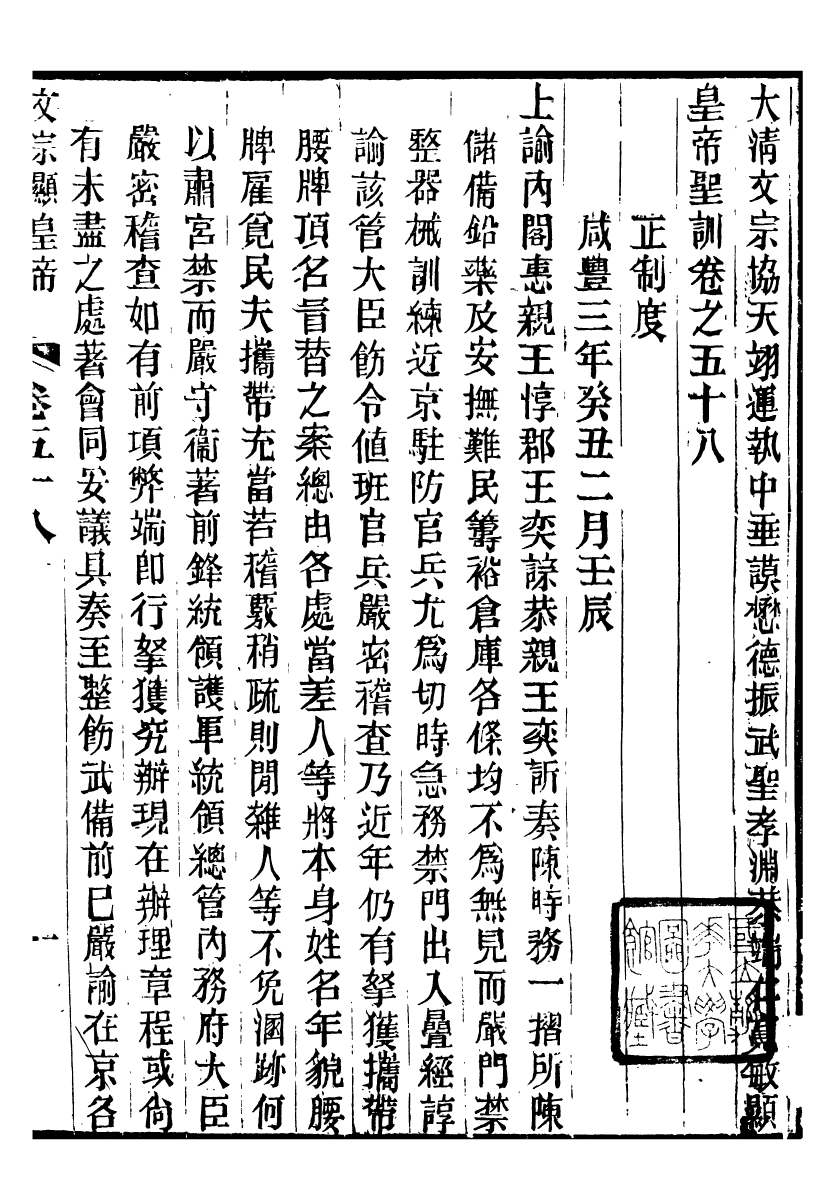 大清文宗協天翊運執中垂謨懋德振武聖孝淵恭端仁寬敏顯
皇帝聖訓卷之五十八
正制度
咸豐三年癸丑二月壬辰
上諭內閣惠親王惇郡王奕誴恭親王奕訢奏陳時務一摺所陳
儲備鉛藥及安撫難民籌裕倉庫各條均不爲無見而嚴門禁
整器械訓練近京駐防官兵尤爲切時急務禁門出入疊經諄
諭該管大臣飭令値班官兵嚴密稽查乃近年仍有拏獲攜帶
腰牌頂名冒替之案總由各處當差人等將本身姓名年貌腰
牌雇覓民夫攜帶充當若稽覈稍疏則閒雜人等不免溷跡何
以肅宮禁而嚴守衞著前鋒統領護軍統領總管內務府大臣
嚴密稽查如有前項弊端卽行拏獲究辦現在辦理章程或尙
有未盡之處著會同妥議具奏至整飭武備前已嚴諭在京各
文宗顯皇帝 卷五十八 一
國立北平大學圖書館藏